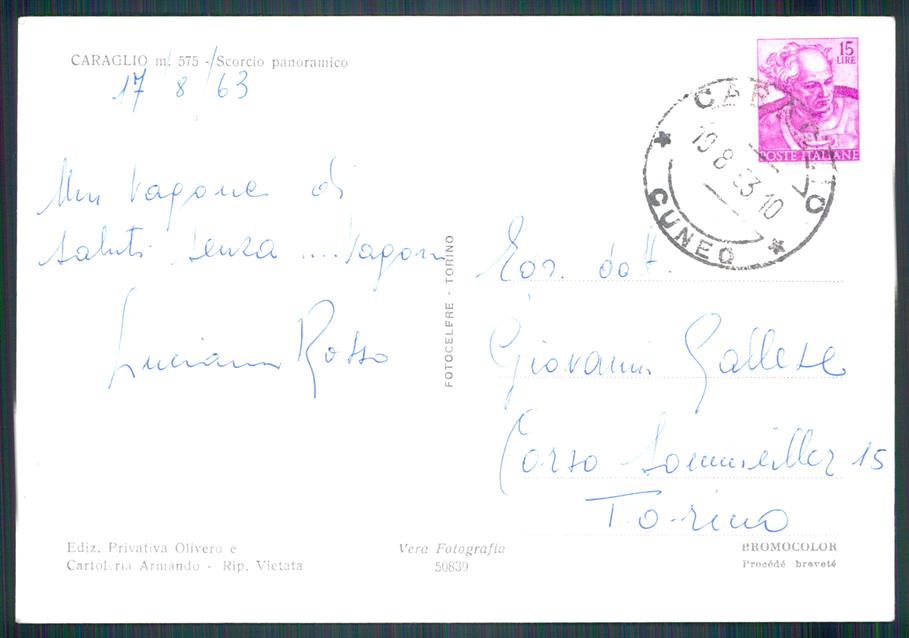 CARAGLIO m. 575 - Scorcio panoramico
17/8/63
15
LIRE
POSTE ITALIANE
CARAGLIO
19 8 63 10
CUNEO
Un vagone di
saluti senza .... vagoni
Luciana Rosso
FOTOCELERE - TORINO
Egr. dott.
Giovanni Gallese
Corso Sommeiller 15
Torino
Ediz. Privativa Olivero e
Cartoleria Armando - Rip. Vietata
Vera Fotografia
50839
BROMOCOLOR
Procédé breveté